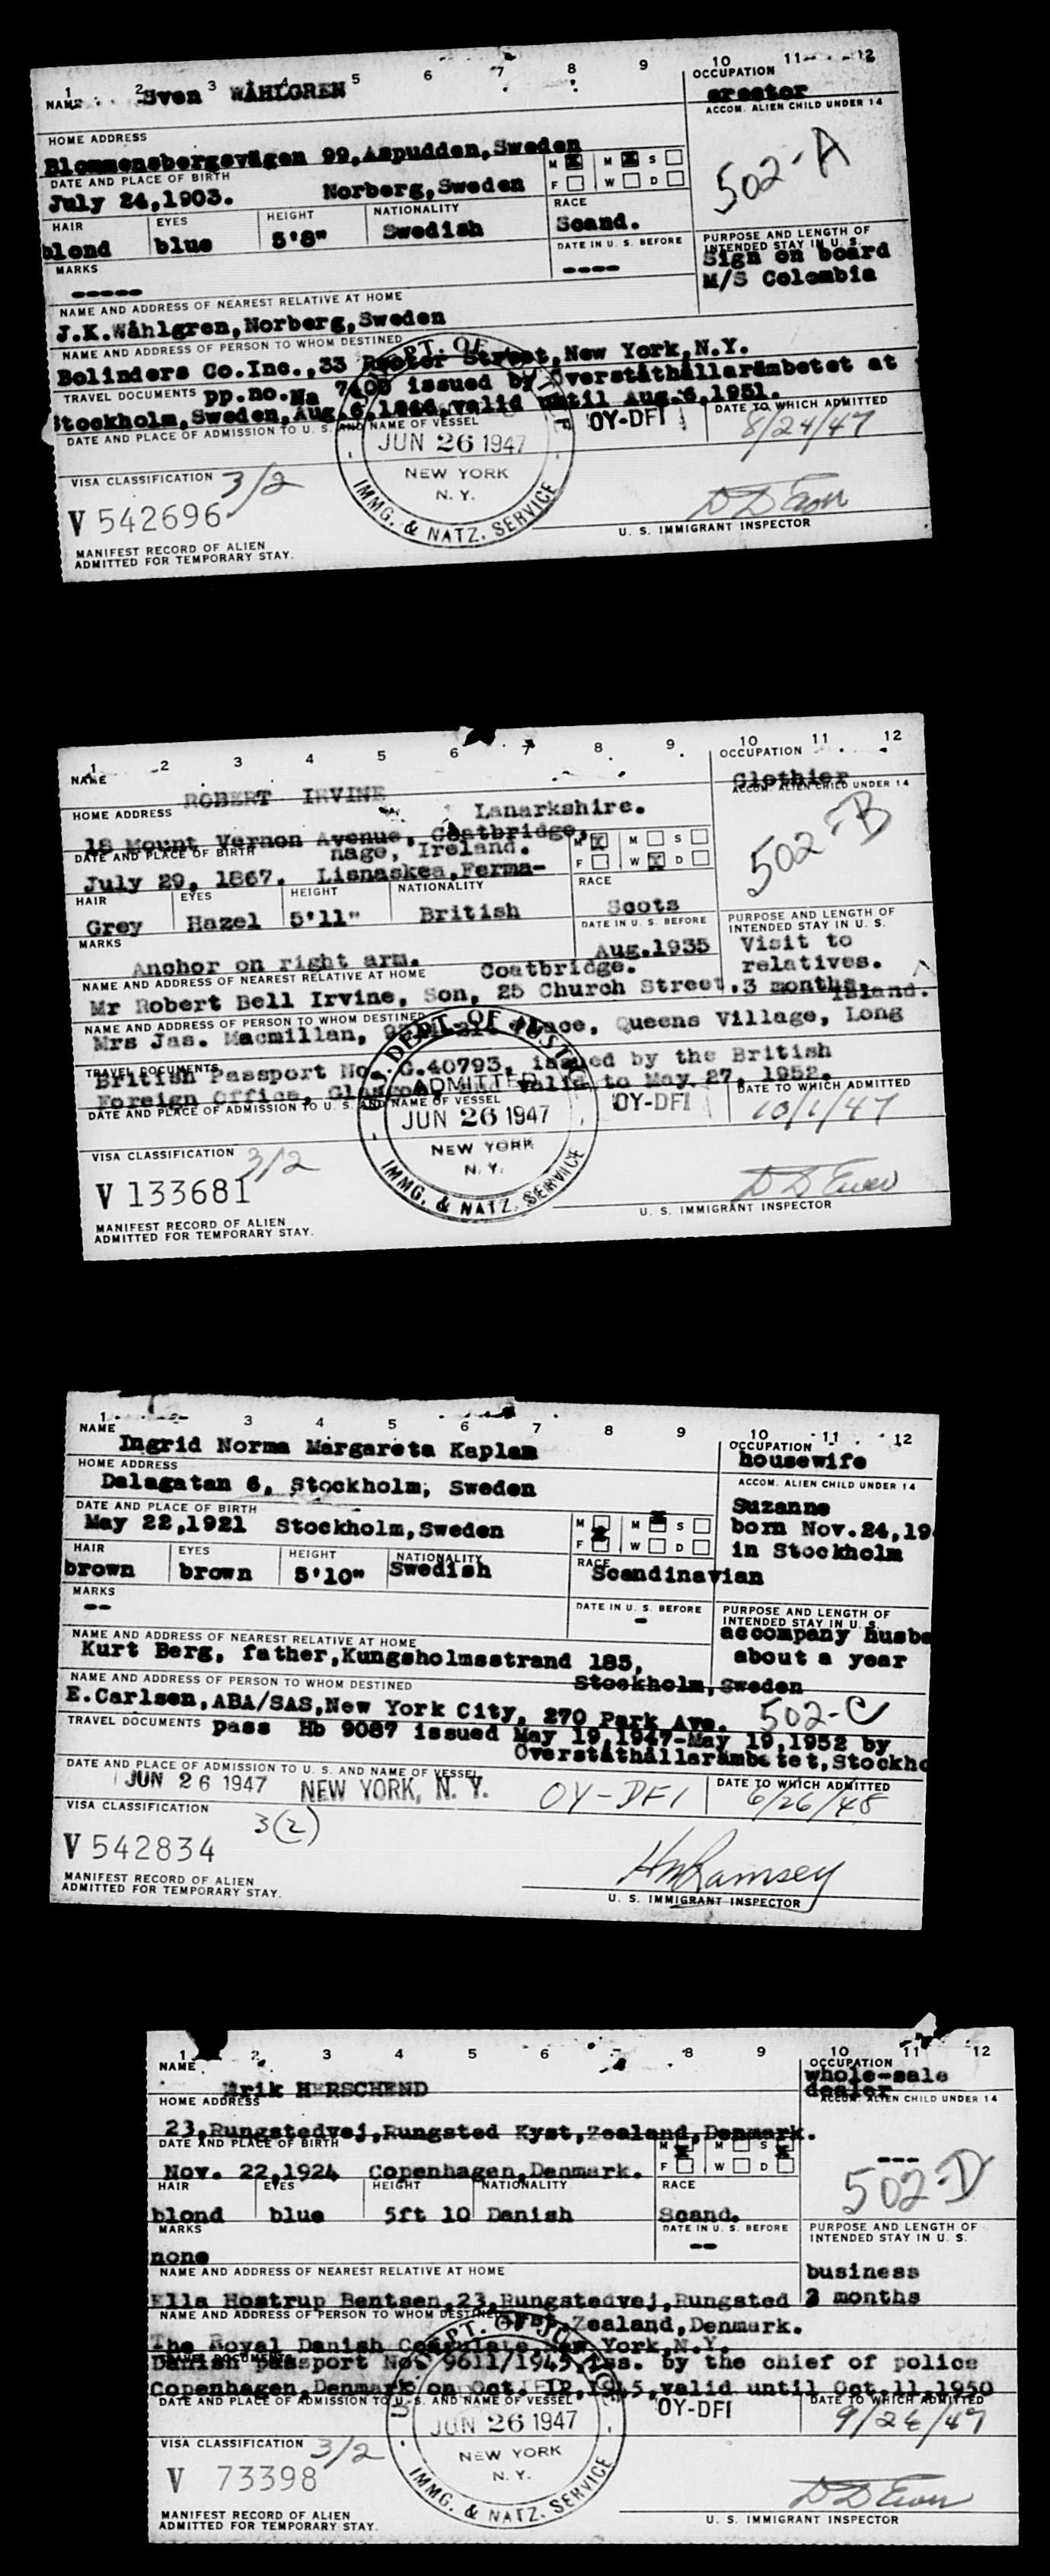 1 2 3 4 5 6 7 8 9 10 11 12
NAME Sven WÅHLGREN
OCCUPATION erector
HOME ADDRESS
Blommensbergsvägen 99,Aspudden,Sweden
ACCOM. ALIEN CHILD UNDER 14
502-A
DATE AND PLACE OF BIRTH
July 24,1903. Norberg,Sweden
M X M X S
F W D
HAIR EYES HEIGHT NATIONALITY RACE
blond blue 5'8" Swedish Scand.
MARKS
-----
DATE IN U. S. BEFORE
----
PURPOSE AND LENGTH OF
INTENDED STAY IN U. S.
Sign on board
M/S Colombia
NAME AND ADDRESS OF NEAREST RELATIVE AT HOME
J.K.Wåhlgren,Norberg,Sweden
NAME AND ADDRESS OF PERSON TO WHOM DESTINED
Bolinders Co.Inc.,33 Rector Street,New York,N.Y.
TRAVEL DOCUMENTS pp.no.Na 7400 issued by Överståthållarämbetet at
Stockholm,Sweden,Aug.6,1946,valid until Aug.6,1951.
DATE AND PLACE OF ADMISSION TO U. S. AND NAME OF VESSEL
OY-DFI
DATE TO WHICH ADMITTED
8/24/47
DEPT. OF
JUN 26 1947
NEW YORK
N. Y.
IMMG. & NATZ. SERVICE
VISA CLASSIFICATION 3/2
V 542696
U. S. IMMIGRANT INSPECTOR
MANIFEST RECORD OF ALIEN
ADMITTED FOR TEMPORARY STAY.
1 2 3 4 5 6 7 8 9 10 11 12
NAME
ROBERT IRVINE
OCCUPATION
Clothier
HOME ADDRESS
Lanarkshire.
18 Mount Vernon Avenue, Coatbridge,
ACCOM. ALIEN CHILD UNDER 14
502-B
DATE AND PLACE OF BIRTH
nagh, Ireland.
July 29, 1867. Lisnaskea,Ferma-
M X M S
F W X D
HAIR EYES HEIGHT NATIONALITY RACE
Grey Hazel 5'11" British Scots
MARKS
Anchor on right arm.
DATE IN U. S. BEFORE
Aug.1935
PURPOSE AND LENGTH OF
INTENDED STAY IN U. S.
Visit to
relatives.
3 months.
NAME AND ADDRESS OF NEAREST RELATIVE AT HOME
Coatbridge.
Mr Robert Bell Irvine, Son, 25 Church Street,
NAME AND ADDRESS OF PERSON TO WHOM DESTINED
Island.
Mrs Jas. Macmillan, Place, Queens Village, Long
TRAVEL DOCUMENTS
British Passport No. C.40793, issued by the British
Foreign Office, Glasgow valid to May 27, 1952.
DATE AND PLACE OF ADMISSION TO U. S. AND NAME OF VESSEL
OY-DFI
DATE TO WHICH ADMITTED
10/1/47
DEPT. OF JUSTICE
ADMITTED
JUN 26 1947
NEW YORK
N. Y.
IMMG. & NATZ. SERVICE
VISA CLASSIFICATION 3/2
V 133681
U. S. IMMIGRANT INSPECTOR
MANIFEST RECORD OF ALIEN
ADMITTED FOR TEMPORARY STAY.
1 3 4 5 6 7 8 9 10 11 12
NAME
Ingrid Norma Margareta Kaplan
OCCUPATION
housewife
HOME ADDRESS
Dalagatan 6, Stockholm, Sweden
ACCOM. ALIEN CHILD UNDER 14
Suzanne
born Nov.24,19
in Stockholm
DATE AND PLACE OF BIRTH
May 22,1921 Stockholm,Sweden
M M X S
F X W D
HAIR EYES HEIGHT NATIONALITY RACE
brown brown 5'10" Swedish Scandinavian
MARKS
--
DATE IN U. S. BEFORE
-
PURPOSE AND LENGTH OF
INTENDED STAY IN U. S.
accompany husba
about a year
NAME AND ADDRESS OF NEAREST RELATIVE AT HOME
Kurt Berg, father,Kungsholmsstrand 185,
Stockholm,Sweden
NAME AND ADDRESS OF PERSON TO WHOM DESTINED
E.Carlsen,ABA/SAS,New York City, 270 Park Ave. 502-C
TRAVEL DOCUMENTS pass Hb 9087 issued May 19,1947-May 19,1952 by
Överståthållarämbetet,Stockho
DATE AND PLACE OF ADMISSION TO U. S. AND NAME OF VESSEL
JUN 26 1947 NEW YORK, N. Y. OY-DFI
DATE TO WHICH ADMITTED
6/26/48
VISA CLASSIFICATION
3(2)
V 542834
HMRamsey
U. S. IMMIGRANT INSPECTOR
MANIFEST RECORD OF ALIEN
ADMITTED FOR TEMPORARY STAY.
1 2 3 4 5 6 7 8 9 10 11 12
NAME
Erik HERSCHEND
OCCUPATION
whole-sale
dealer
HOME ADDRESS
23,Rungstedvej,Rungsted Kyst,Zealand,Denmark.
ACCOM. ALIEN CHILD UNDER 14
---
502-D
DATE AND PLACE OF BIRTH
Nov. 22,1924 Copenhagen,Denmark.
M X M S X
F W D
HAIR EYES HEIGHT NATIONALITY RACE
blond blue 5ft 10 Danish Scand.
MARKS
none
DATE IN U. S. BEFORE
--
PURPOSE AND LENGTH OF
INTENDED STAY IN U. S.
business
3 months
NAME AND ADDRESS OF NEAREST RELATIVE AT HOME
Ella Hostrup Bentsen,23,Rungstedvej,Rungsted
NAME AND ADDRESS OF PERSON TO WHOM DESTINED
Kyst,Zealand,Denmark.
The Royal Danish Consulate,New York,N.Y.
TRAVEL DOCUMENTS
Danish passport No. 9611/1945,iss. by the chief of police
Copenhagen,Denmark on Oct. 12,1945,valid until Oct.11,1950
DATE AND PLACE OF ADMISSION TO U. S. AND NAME OF VESSEL
OY-DFI
DATE TO WHICH ADMITTED
9/26/47
JUN 26 1947
NEW YORK
N. Y.
IMMG. & NATZ. SERVICE
VISA CLASSIFICATION 3/2
V 73398
U. S. IMMIGRANT INSPECTOR
MANIFEST RECORD OF ALIEN
ADMITTED FOR TEMPORARY STAY.